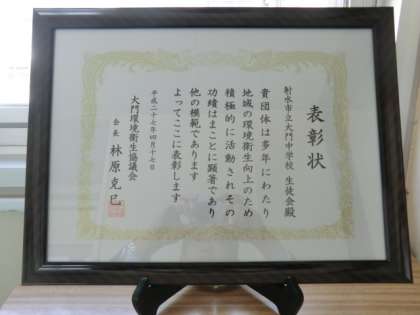 表彰状
射水市立大門中学校 生徒会殿
貴団体は多年にわたり
地域の環境衛生向上のため
積極的に活動されその
功績はまことに顕著であり
他の模範であります
よってここに表彰します
平成二十七年四月十七日
大門環境衛生協議会
会長 林原克巳